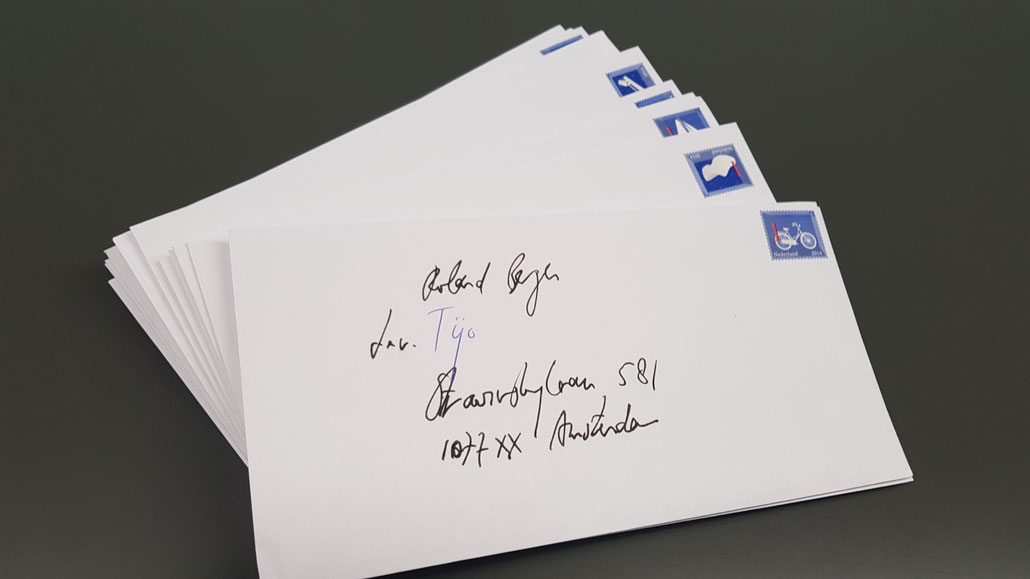 Roland Berger
t.a.v. Tijo
Strawinskylaan 581
1077 XX Amsterdam
Nederland 2014